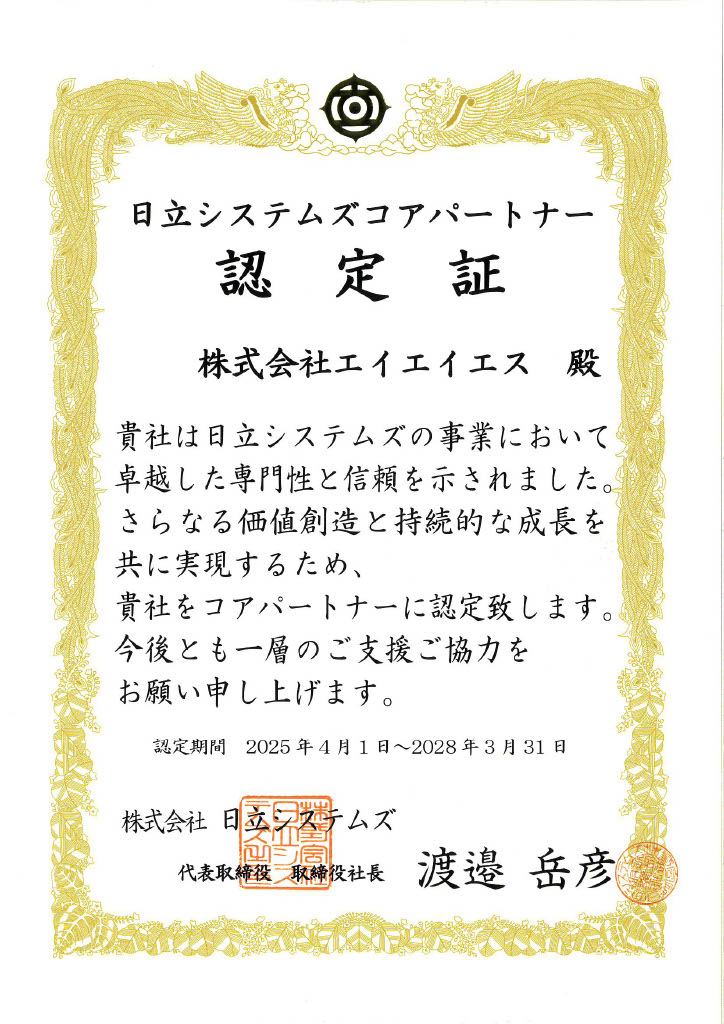 日立システムズコアパートナー
認定証
株式会社エイエイエス 殿
貴社は日立システムズの事業において
卓越した専門性と信頼を示されました。
さらなる価値創造と持続的な成長を
共に実現するため、
貴社をコアパートナーに認定致します。
今後とも一層のご支援ご協力を
お願い申し上げます。
認定期間 2025年4月1日~2028年3月31日
株式会社 日立システムズ
代表取締役 取締役社長 渡邉 岳彦